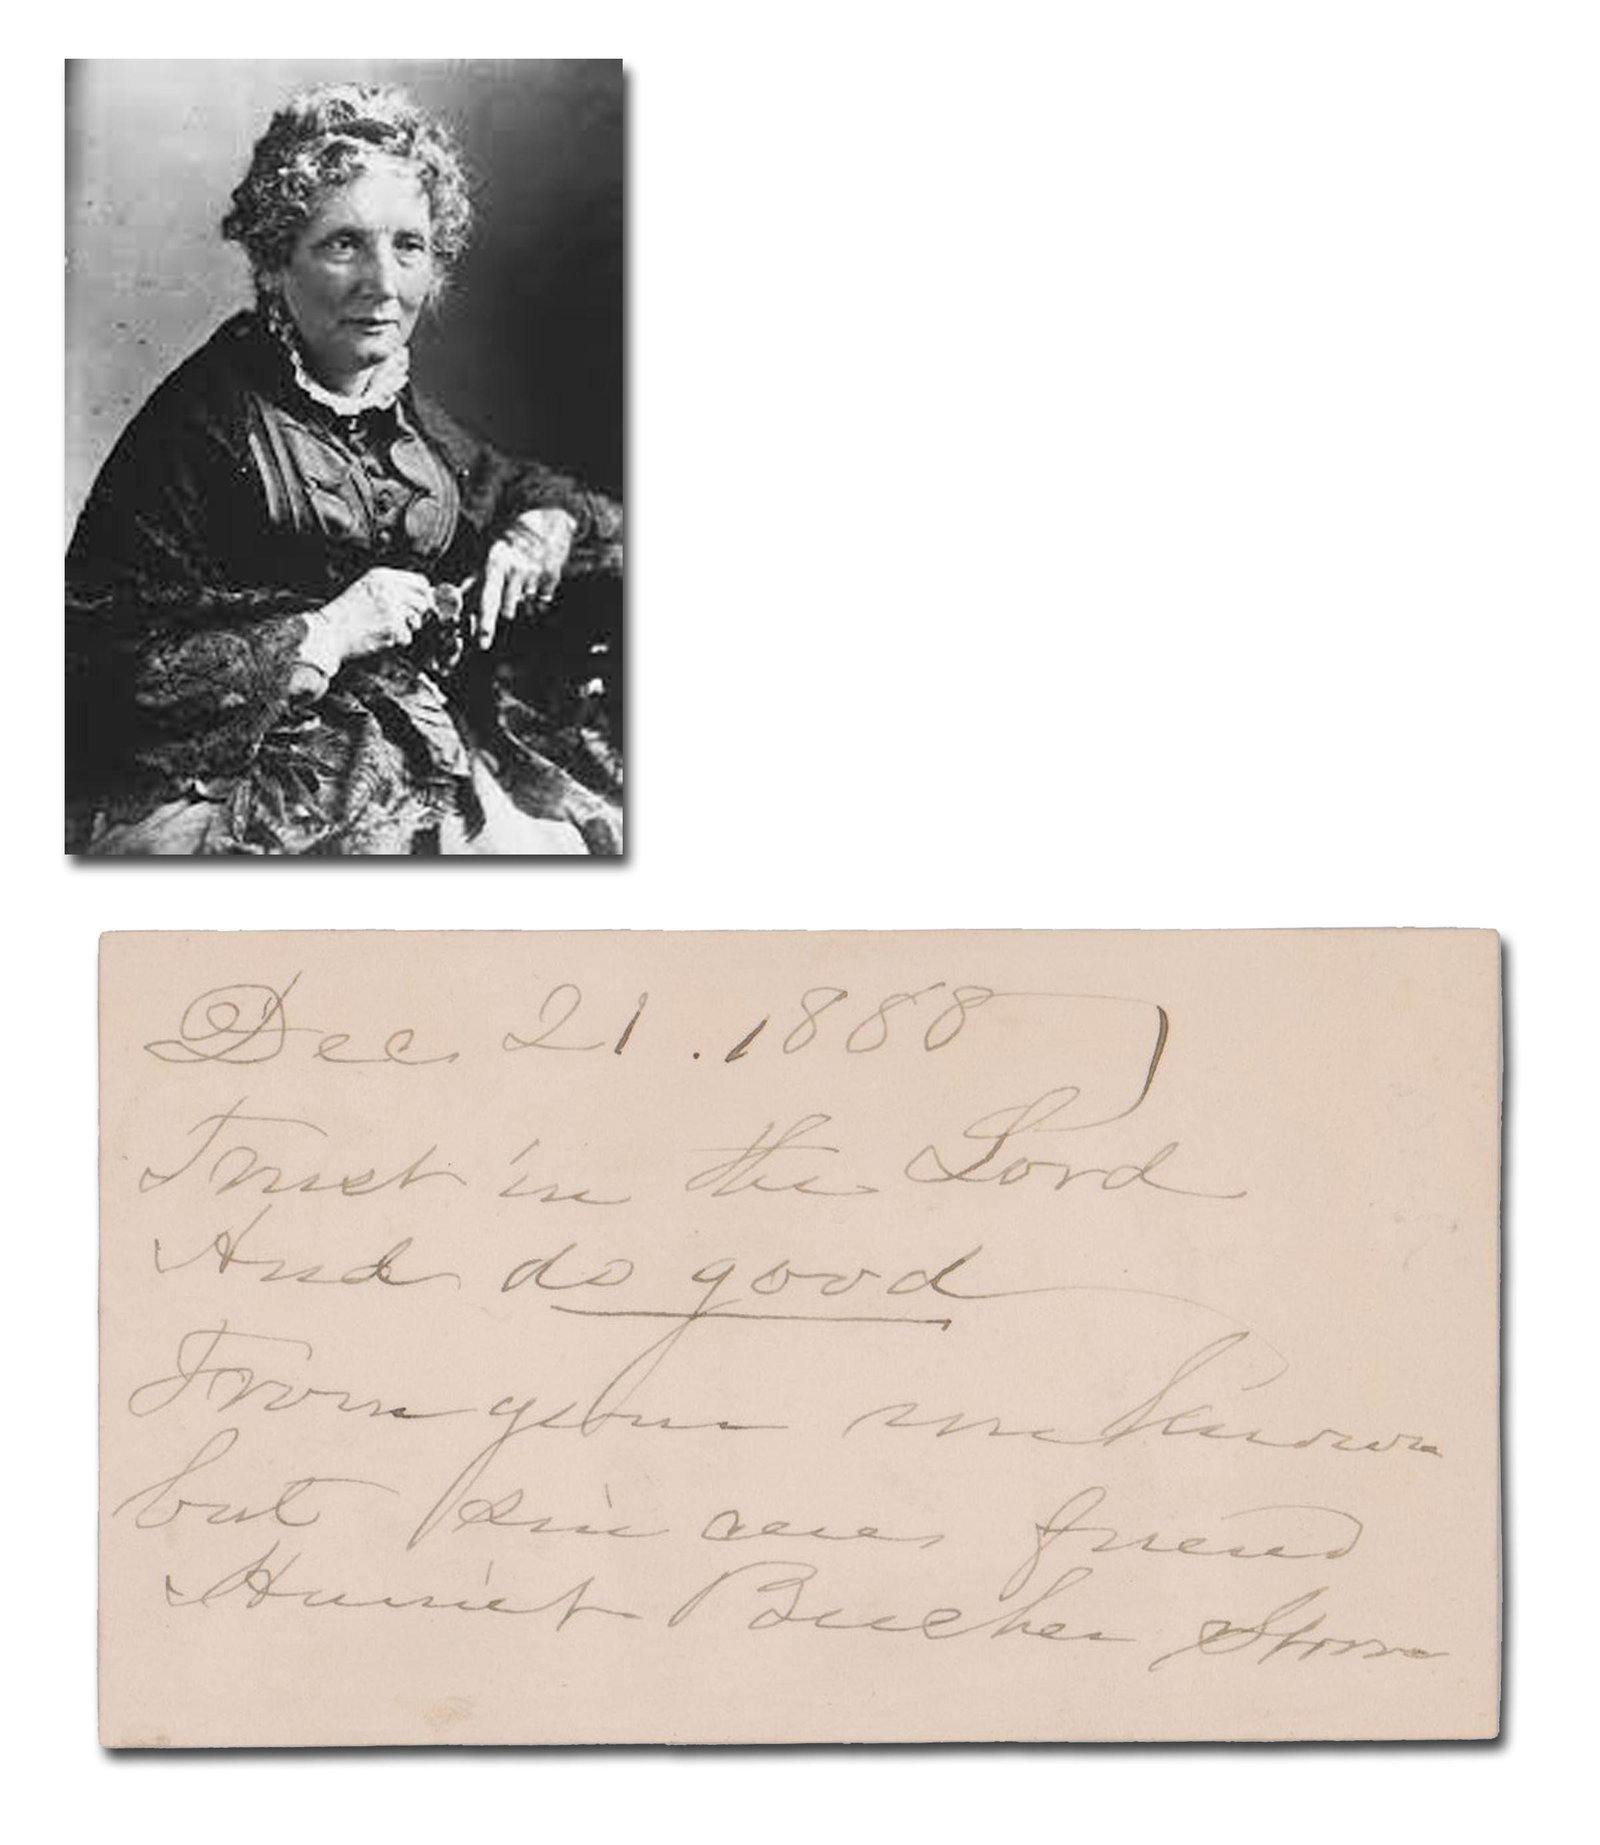 Dec 21. 1888
Trust in the Lord
And do good
From your unknown
but sincere friend
Harriet Beecher Stowe